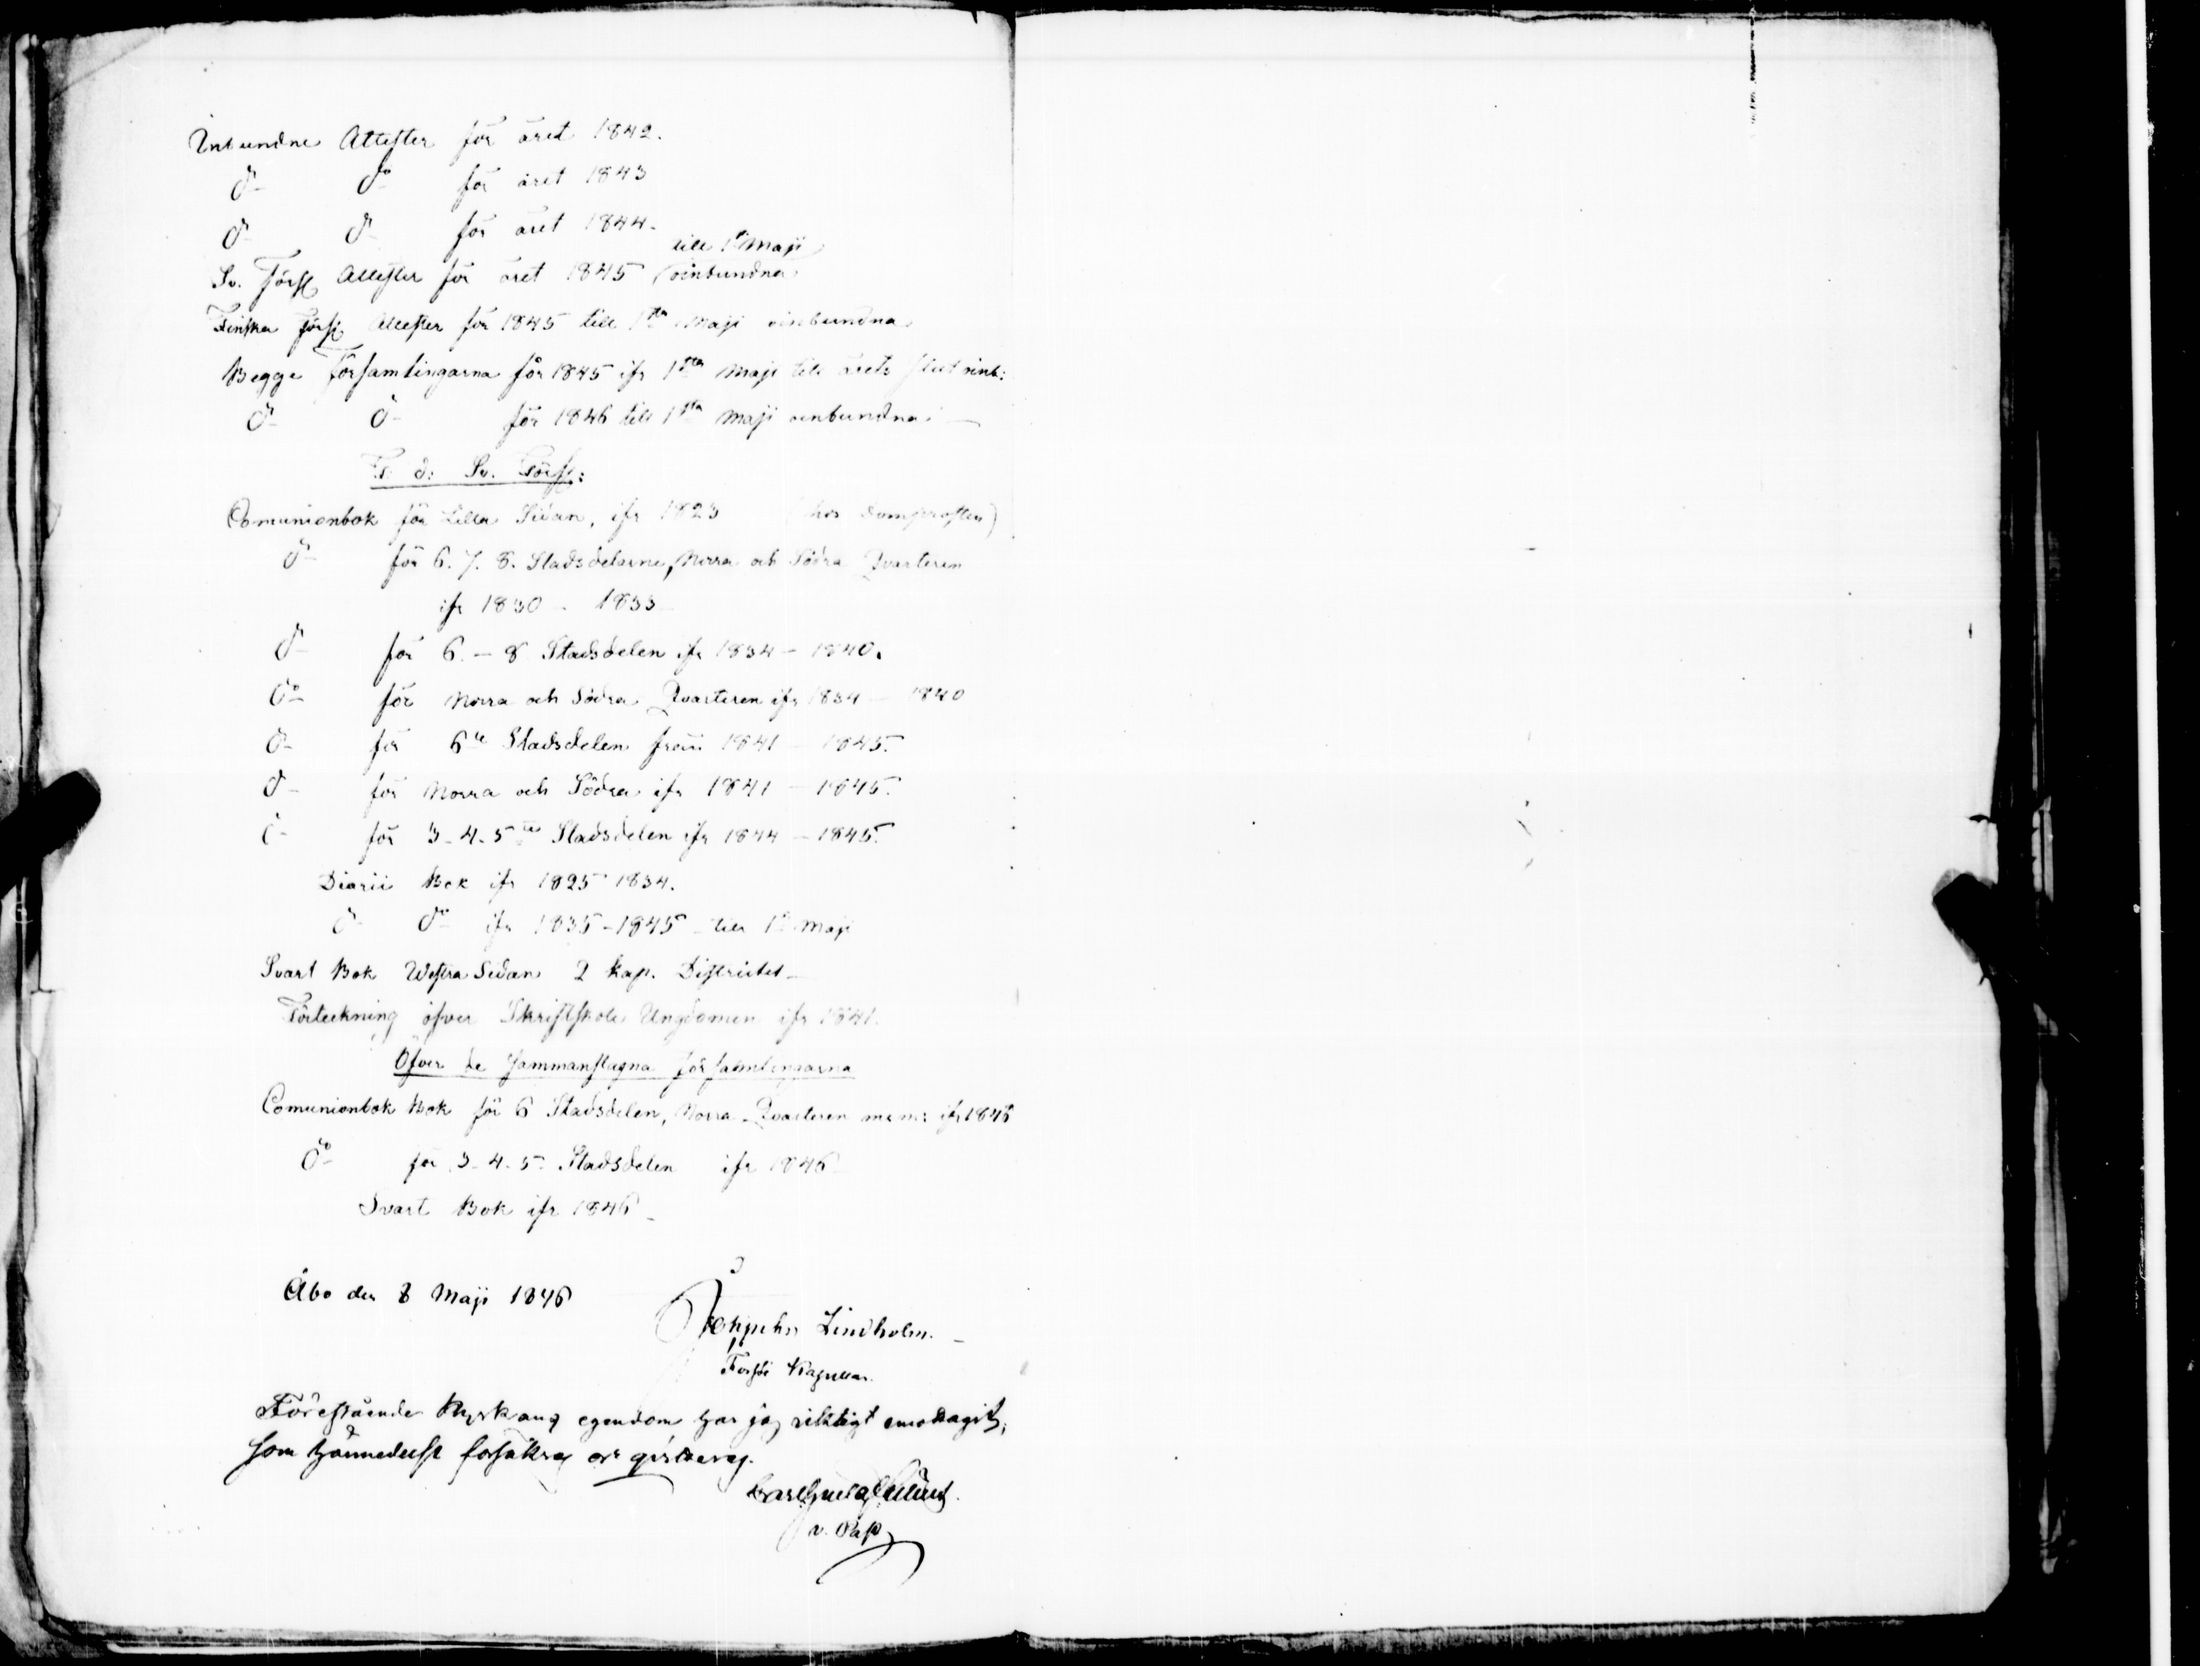 Inbundne Attester för året 1842.
do do för året 1843
do do för året 1844.
till 1sta Maji
Sv. Förs. Attester för året 1845 (oinbundna
Finska Förs. Attester för 1845 till 1sta Maji oinbundna
Begge Församlingarna för 1845 ifr 1sta Maji till årets slut oinb:
do do för 1846 till 1sta Maji oinbundna
F. d: Sv. Förs:
Comunionbok för Lilla Sidan, ifr 1823 (hos Domprosten)
do för 6. 7. 8. Stadsdelarne, Norra och Södra Qvarteren
ifr 1830 - 1833
do för 6. - 8 Stadsdelen ifr 1834 - 1840.
do för Norra och Södra Qvarteren ifr 1834 - 1840
do för 6te Stadsdelen från 1841 - 1845.
do för Norra och Södra ifr 1841 - 1845.
do för 3-4-5te Stadsdelen ifr 1844 - 1845.
Diarii Bok ifr 1825 1834.
do do ifr 1835-1845 till 1sta Maji
Svart Bok Westra Sidan 2 Kap. Districtet
Förteckning öfver Skriftskole Ungdomen ifr 1841.
Öfver de sammanslagna församlingarna
Comunionbok Bok för 6 Stadsdelen, Norra Qvarteren m:m: ifr 1846
do för 3-4-5 Stadsdelen ifr 1846
Svart Bok ifr 1846
Åbo den 8 Maji 1846
Lindholm.
Förestående Kyrkans egendom har jag riktigt emottagit,
som härmedelst försäkras och qvitteras.
Carl
v. Past